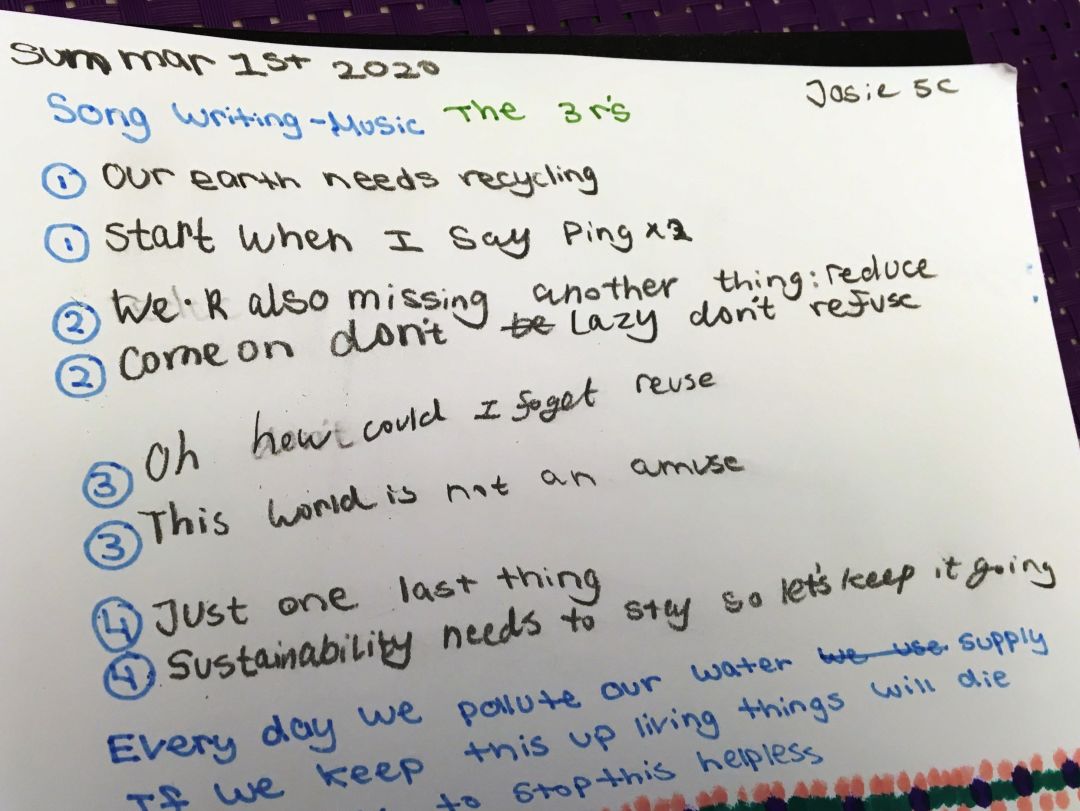 Summar 1st 2020
Josie 5C
Song Writing-Music The 3 r's
1 Our earth needs recycling
1 Start When I Say Ping x2
2 We R also missing another thing: reduce
2 Come on don't be Lazy don't refuse
3 Oh how could I foget reuse
3 This world is not an amuse
4 Just one last thing
4 Sustainability needs to stay so let's keep it going
Every day we pollute our water we use supply
If we keep this up living things will die
to stop this helpless